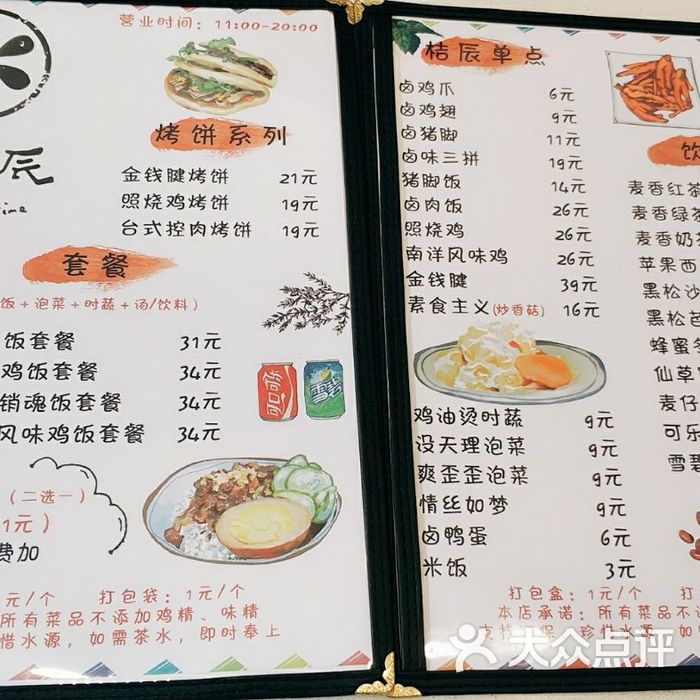 营业时间：11:00-20:00
辰
ime
烤饼系列
金钱腱烤饼 21元
照烧鸡烤饼 19元
台式控肉烤饼 19元
套餐
饭＋泡菜＋时蔬＋汤/饮料）
饭套餐 31元
鸡饭套餐 34元
销魂饭套餐 34元
风味鸡饭套餐 34元
可口可乐
雪碧
（二选一）
1元）
费加
元/个 打包袋：1元/个
所有菜品不添加鸡精、味精
惜水源，如需茶水，即时奉上
桔辰单点
卤鸡爪 6元
卤鸡翅 9元
卤猪脚 11元
卤味三拼 19元
猪脚饭 14元
卤肉饭 26元
照烧鸡 26元
南洋风味鸡 26元
金钱腱 39元
素食主义(炒香菇) 16元
鸡油烫时蔬 9元
没天理泡菜 9元
爽歪歪泡菜 9元
情丝如梦 9元
卤鸭蛋 6元
米饭 3元
打包盒：1元/个 打
本店承诺：所有菜品不
珍惜水源，如
饮
麦香红茶
麦香绿茶
麦香奶茶
苹果西
黑松沙
黑松芭
蜂蜜冬
仙草
麦仔
可乐
雪碧
大众点评